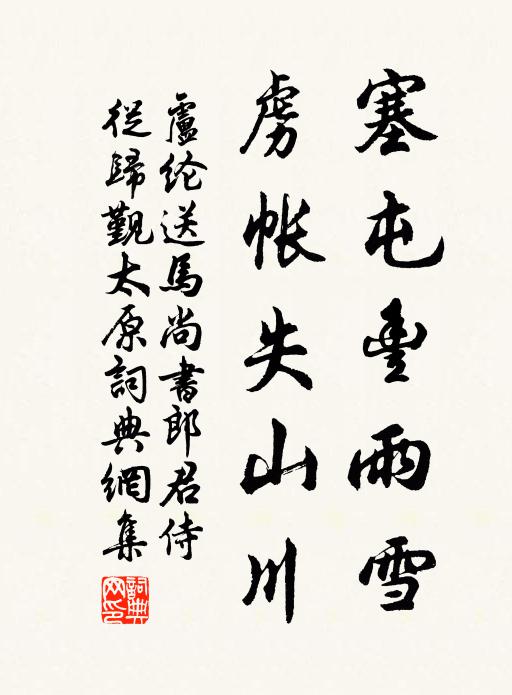 塞屯豊雨雪
虜帳失山川
盧纶送馬尚書郎君侍
從歸覲太原詞典網集
詞典
网印